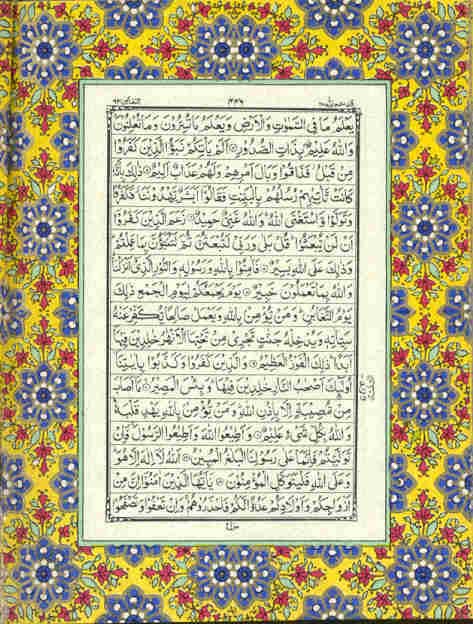 يَعْلَمُ مَا فِي السَّمٰوٰتِ وَالْاَرْضِ وَيَعْلَمُ مَا تُسِرُّوْنَ وَمَا تُعْلِنُوْنَ
وَاللّٰهُ عَلِيْمٌۢ بِذَاتِ الصُّدُوْرِ۝ اَلَمْ يَاْتِكُمْ نَبَؤُا الَّذِيْنَ كَفَرُوْا
مِنْ قَبْلُ فَذَاقُوْا وَبَالَ اَمْرِهِمْ وَلَهُمْ عَذَابٌ اَلِيْمٌ۝ ذٰلِكَ بِاَنَّهٗ
كَانَتْ تَّاْتِيْهِمْ رُسُلُهُمْ بِالْبَيِّنٰتِ فَقَالُوْٓا اَبَشَرٌ يَّهْدُوْنَنَا فَكَفَرُوْا
وَتَوَلَّوْا وَّاسْتَغْنَى اللّٰهُ وَاللّٰهُ غَنِيٌّ حَمِيْدٌ۝ زَعَمَ الَّذِيْنَ كَفَرُوْٓا
اَنْ لَّنْ يُّبْعَثُوْا قُلْ بَلٰى وَرَبِّيْ لَتُبْعَثُنَّ ثُمَّ لَتُنَبَّؤُنَّ بِمَا عَمِلْتُمْ
وَذٰلِكَ عَلَى اللّٰهِ يَسِيْرٌ۝ فَاٰمِنُوْا بِاللّٰهِ وَرَسُوْلِهٖ وَالنُّوْرِ الَّذِيْٓ اَنْزَلْنَا
وَاللّٰهُ بِمَا تَعْمَلُوْنَ خَبِيْرٌ۝ يَوْمَ يَجْمَعُكُمْ لِيَوْمِ الْجَمْعِ ذٰلِكَ
يَوْمُ التَّغَابُنِ وَمَنْ يُّؤْمِنْۢ بِاللّٰهِ وَيَعْمَلْ صَالِحًا يُّكَفِّرْ عَنْهُ
سَيِّاٰتِهٖ وَيُدْخِلْهُ جَنّٰتٍ تَجْرِيْ مِنْ تَحْتِهَا الْاَنْهٰرُ خٰلِدِيْنَ فِيْهَآ
اَبَدًا ذٰلِكَ الْفَوْزُ الْعَظِيْمُ۝ وَالَّذِيْنَ كَفَرُوْا وَكَذَّبُوْا بِاٰيٰتِنَآ
اُولٰٓئِكَ اَصْحٰبُ النَّارِ خٰلِدِيْنَ فِيْهَا وَبِئْسَ الْمَصِيْرُ۝ مَآ اَصَابَ
مِنْ مُّصِيْبَةٍ اِلَّا بِاِذْنِ اللّٰهِ وَمَنْ يُّؤْمِنْۢ بِاللّٰهِ يَهْدِ قَلْبَهٗ
وَاللّٰهُ بِكُلِّ شَيْءٍ عَلِيْمٌ۝ وَاَطِيْعُوا اللّٰهَ وَاَطِيْعُوا الرَّسُوْلَ فَاِنْ
تَوَلَّيْتُمْ فَاِنَّمَا عَلٰى رَسُوْلِنَا الْبَلٰغُ الْمُبِيْنُ۝ اَللّٰهُ لَآ اِلٰهَ اِلَّا هُوَ
وَعَلَى اللّٰهِ فَلْيَتَوَكَّلِ الْمُؤْمِنُوْنَ۝ يٰٓاَيُّهَا الَّذِيْنَ اٰمَنُوْٓا اِنَّ مِنْ
اَزْوَاجِكُمْ وَاَوْلَادِكُمْ عَدُوًّا لَّكُمْ فَاحْذَرُوْهُمْ وَاِنْ تَعْفُوْا وَتَصْفَحُوْا